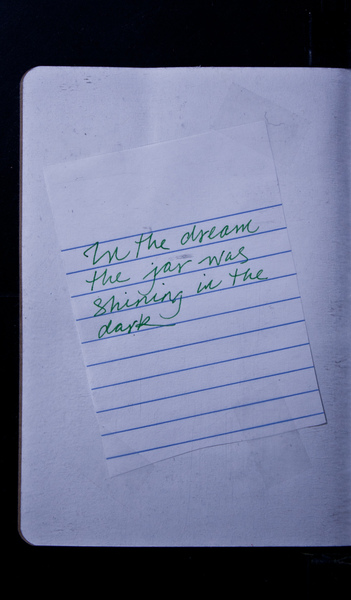 In the dream
the jar was
shining in the
dark